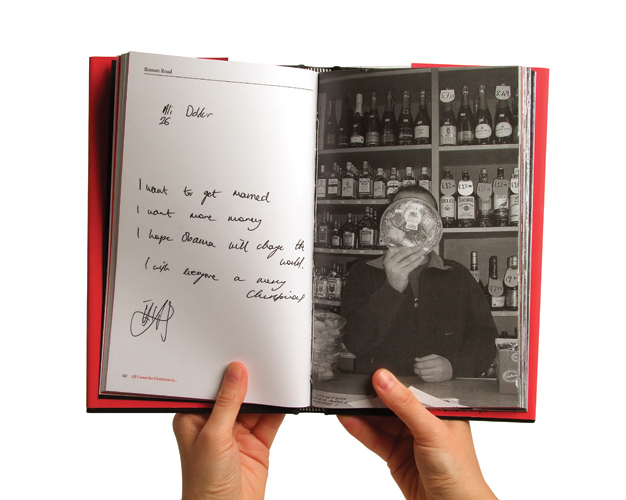 Roman Road
Ali Dolder
26
I want to get married
I want more money
I hope Obama will change the
world.
I wish everyone a merry
Christmas
All I want for Christmas is...
£8.49